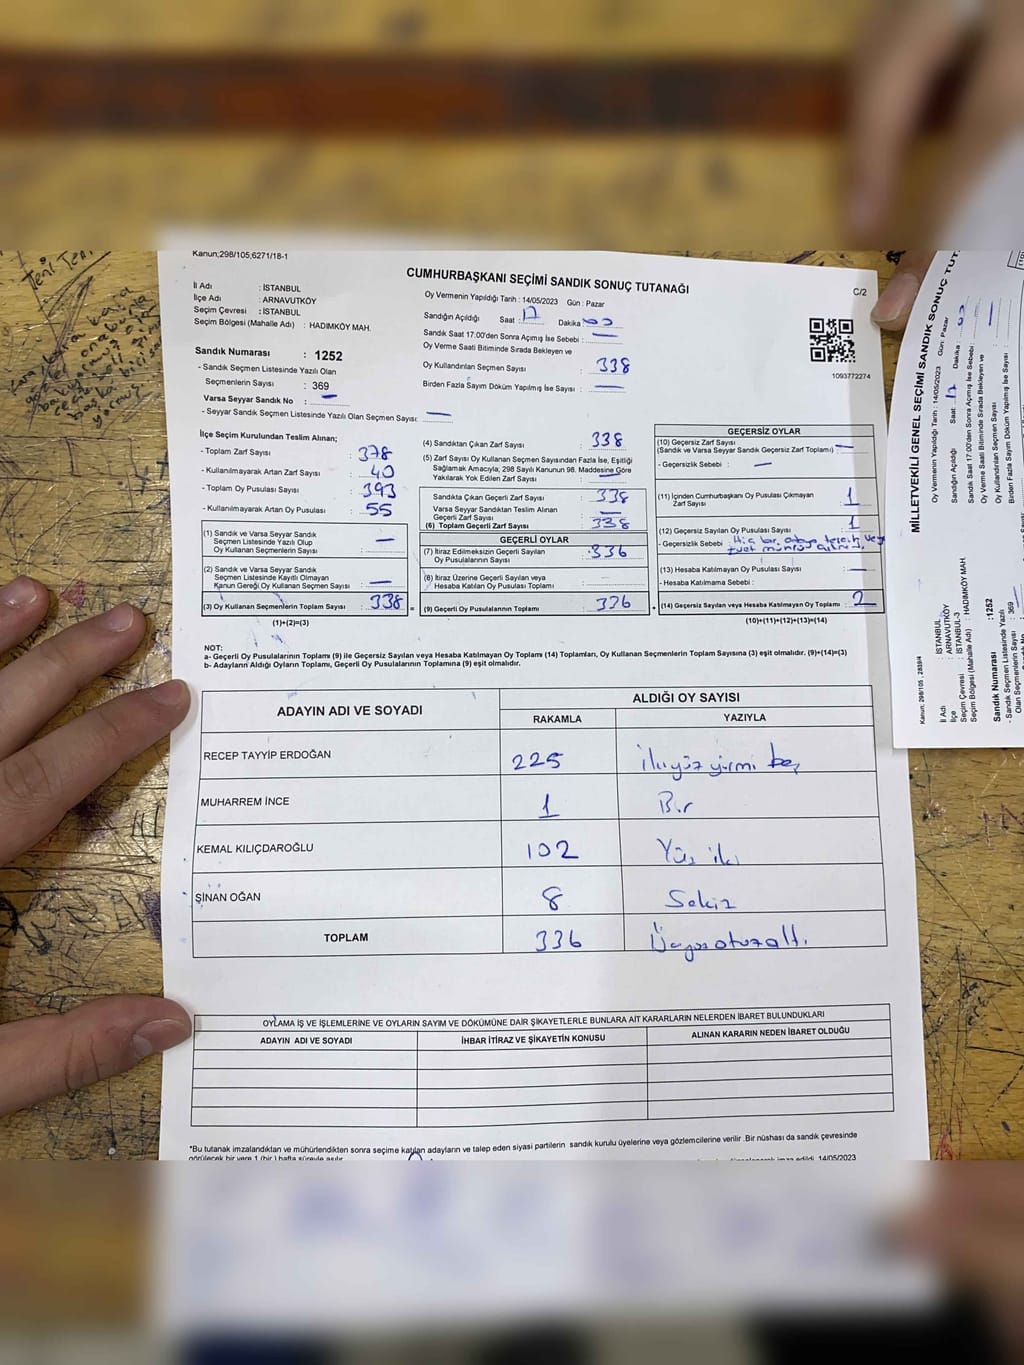 Kanun;298/105;6271/18-1
CUMHURBAŞKANI SEÇİMİ SANDIK SONUÇ TUTANAĞI
C/2
İl Adı : İSTANBUL
İlçe Adı : ARNAVUTKÖY
Seçim Çevresi : İSTANBUL
Seçim Bölgesi (Mahalle Adı) : HADIMKÖY MAH.
Sandık Numarası : 1252
- Sandık Seçmen Listesinde Yazılı Olan
Seçmenlerin Sayısı : 369
Varsa Seyyar Sandık No : —
- Seyyar Sandık Seçmen Listesinde Yazılı Olan Seçmen Sayısı: —
Oy Vermenin Yapıldığı Tarih : 14/05/2023 Gün : Pazar
Sandığın Açıldığı Saat : 17 Dakika :
Sandık Saat 17:00'den Sonra Açılmış İse Sebebi : —
Oy Verme Saati Bitiminde Sırada Bekleyen ve
Oy Kullandırılan Seçmen Sayısı : 338
Birden Fazla Sayım Döküm Yapılmış İse Sayısı : —
1093772274
İlçe Seçim Kurulundan Teslim Alınan;
- Toplam Zarf Sayısı : 378
- Kullanılmayarak Artan Zarf Sayısı : 40
- Toplam Oy Pusulası Sayısı : 393
- Kullanılmayarak Artan Oy Pusulası : 55
(1) Sandık ve Varsa Seyyar Sandık
Seçmen Listesinde Yazılı Olup
Oy Kullanan Seçmenlerin Sayısı : —
(2) Sandık ve Varsa Seyyar Sandık
Seçmen Listesinde Kayıtlı Olmayan
Kanun Gereği Oy Kullanan Seçmen Sayısı : —
(3) Oy Kullanan Seçmenlerin Toplam Sayısı : 338 =
(1)+(2)=(3)
(4) Sandıktan Çıkan Zarf Sayısı : 338
(5) Zarf Sayısı Oy Kullanan Seçmen Sayısından Fazla İse, Eşitliği
Sağlamak Amacıyla; 298 Sayılı Kanunun 98. Maddesine Göre
Yakılarak Yok Edilen Zarf Sayısı : —
Sandıkta Çıkan Geçerli Zarf Sayısı : 338
Varsa Seyyar Sandıktan Teslim Alınan
Geçerli Zarf Sayısı : —
(6) Toplam Geçerli Zarf Sayısı : 338
GEÇERLİ OYLAR
(7) İtiraz Edilmeksizin Geçerli Sayılan
Oy Pusulalarının Sayısı : 336
(8) İtiraz Üzerine Geçerli Sayılan veya
Hesaba Katılan Oy Pusulası Toplamı :
(9) Geçerli Oy Pusulalarının Toplamı : 336 +
GEÇERSİZ OYLAR
(10) Geçersiz Zarf Sayısı
(Sandık ve Varsa Seyyar Sandık Geçersiz Zarf Toplamı) : —
- Geçersizlik Sebebi : —
(11) İçinden Cumhurbaşkanı Oy Pusulası Çıkmayan
Zarf Sayısı : 1
(12) Geçersiz Sayılan Oy Pusulası Sayısı : 1
- Geçersizlik Sebebi : Hiç bir adaya tercih vey
(13) Hesaba Katılmayan Oy Pusulası Sayısı : —
- Hesaba Katılmama Sebebi :
(14) Geçersiz Sayılan veya Hesaba Katılmayan Oy Toplamı : 2
(10)+(11)+(12)+(13)=(14)
NOT:
a- Geçerli Oy Pusulalarının Toplamı (9) ile Geçersiz Sayılan veya Hesaba Katılmayan Oy Toplamı (14) Toplamları, Oy Kullanan Seçmenlerin Toplam Sayısına (3) eşit olmalıdır. (9)+(14)=(3)
b- Adayların Aldığı Oyların Toplamı, Geçerli Oy Pusulalarının Toplamına (9) eşit olmalıdır.
ADAYIN ADI VE SOYADI ALDIĞI OY SAYISI
RAKAMLA YAZIYLA
RECEP TAYYİP ERDOĞAN 225 İkiyüz yirmi beş
MUHARREM İNCE 1 Bir
KEMAL KILIÇDAROĞLU 102 Yüz iki
SİNAN OĞAN 8 Sekiz
TOPLAM 336 Üçyüz otuz altı
OYLAMA İŞ VE İŞLEMLERİNE VE OYLARIN SAYIM VE DÖKÜMÜNE DAİR ŞİKAYETLERLE BUNLARA AİT KARARLARIN NELERDEN İBARET BULUNDUKLARI
ADAYIN ADI VE SOYADI İHBAR İTİRAZ VE ŞİKAYETİN KONUSU ALINAN KARARIN NEDEN İBARET OLDUĞU
*Bu tutanak imzalandıktan ve mühürlendikten sonra seçime katılan adayların ve talep eden siyasi partilerin sandık kurulu üyelerine veya gözlemcilerine verilir .Bir nüshası da sandık çevresinde
14/05/2023
MİLLETVEKİLİ GENEL SEÇİMİ SANDIK SONUÇ TUT
Kanun; 298/105 , 2839/4
İl Adı : İSTANBUL
İlçe : ARNAVUTKÖY
Seçim Çevresi : İSTANBUL-3
Seçim Bölgesi (Mahalle Adı) : HADIMKÖY MAH.
Sandık Numarası : 1252
- Sandık Seçmen Listesinde Yazılı
Olan Seçmenlerin Sayısı : 369
Oy Vermenin Yapıldığı Tarih : 14/05/2023 Gün: Pazar
Sandığın Açıldığı Saat : 17 Dakika :
Sandık Saat 17.00'den Sonra Açılmış İse Sebebi :
Oy Verme Saati Bitiminde Sırada Bekleyen ve
Oy Kullandırılan Seçmen Sayısı :
Birden Fazla Sayım Döküm Yapılmış İse Sayısı :